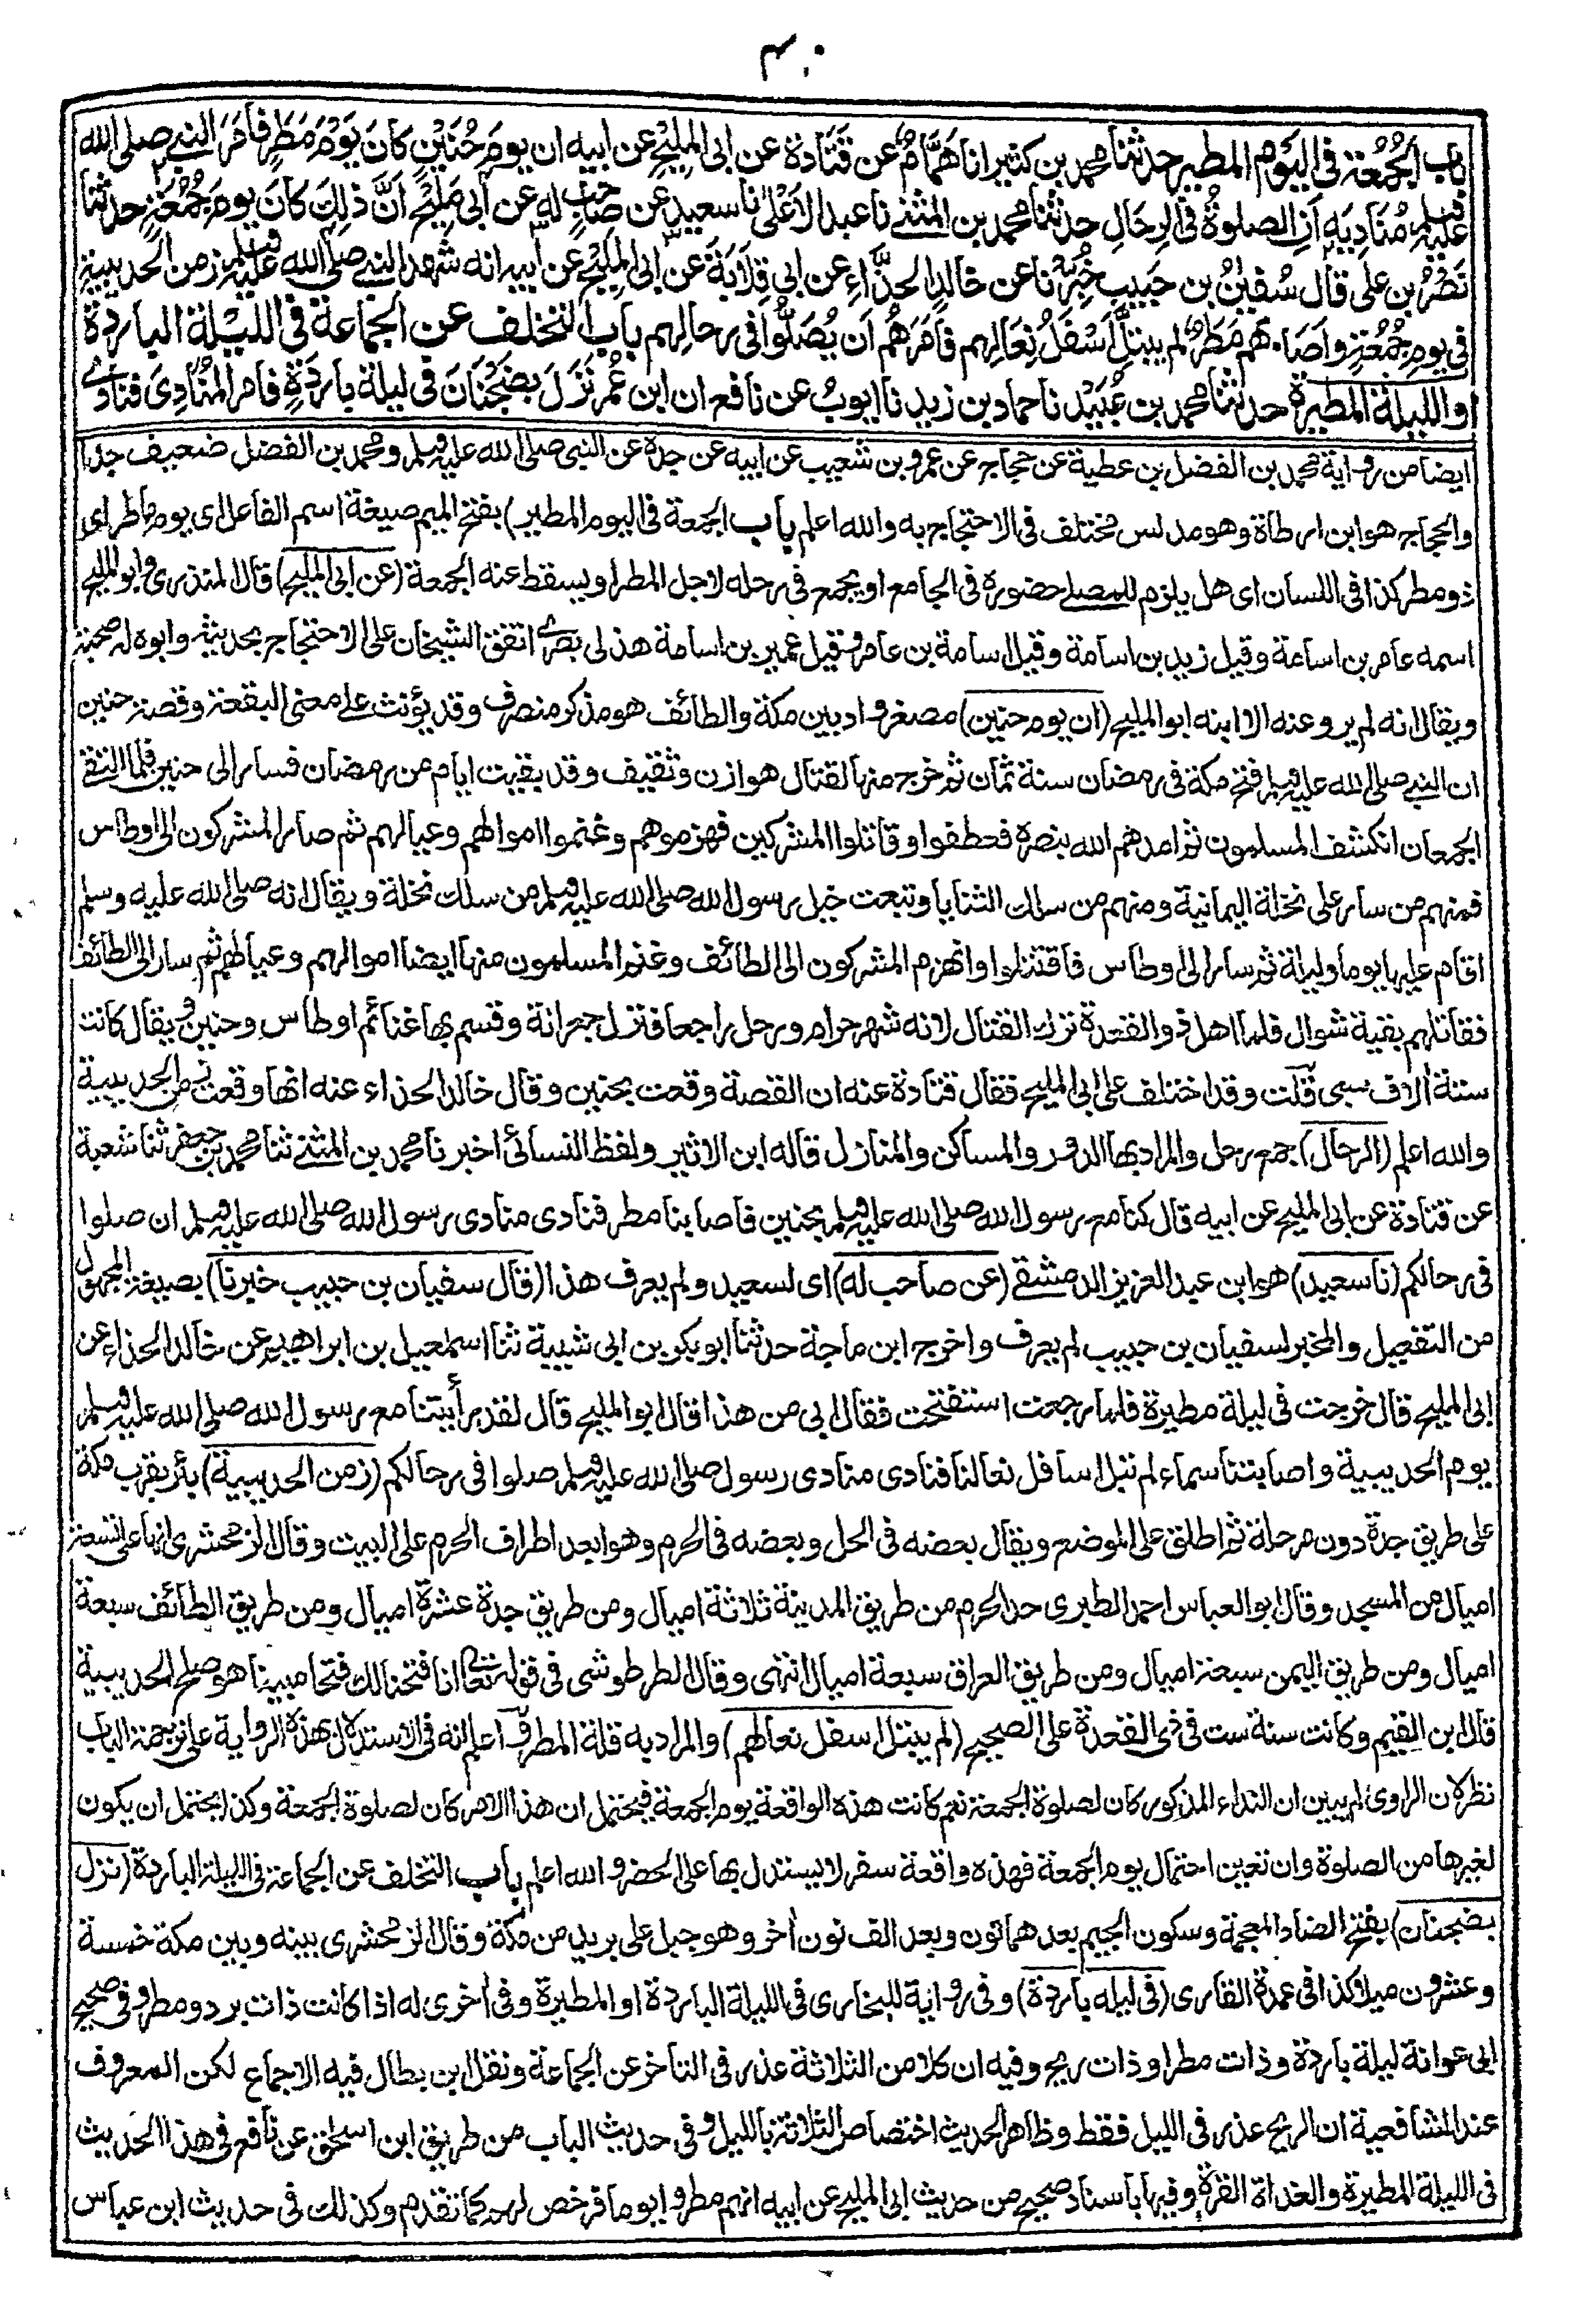 ٤٠
باب الجُمُعَة فى اليَوْم المَطير حدثنا محمد بن كثير انا هَمَّامٌ عن قَتَادة عن ابى المَلِيْحِ عن ابيه ان يومَ حُنَيْنٍ كانَ يَوْمُ مَطَرٍ فأمَرَ النبى صلى الله
عليه وسلم مُنَادِيَه اَنِ الصلوةُ فى الرِحَالِ حدثنا محمد بن المثنى نا عبد الاَعْلى نا سعيد عن صَاحِبٍ له عن أبى مَلِيْحٍ اَنَّ ذٰلِكَ كانَ يومَ جُمُعَةٍ حدثنا
نَصْرُ بن على قال سُفيٰنُ بن حَبيبٍ خُبِّرْنا عن خالدٍ الحذَّاءِ عن ابى قِلَابَةَ عن ابى المَلِيْحِ عن أبيه انه شَهِدَ النبى صلى الله عليه وسلم زمن الحديبية
فى يومِ جُمُعَةٍ واَصَابَهم مَطَرٌ لم يبتلَّ اَسْفَلُ نِعَالِهم فأمَرَهُم اَن يُصَلُّوا فى رحالِهم باب التخلف عن الجماعة فى الليْلة الباردة
او الليلة المطيرة حدثنا محمد بن عُبَيْد نا حماد بن زيد نا ايوبُ عن نافع ان ابن عُمر نَزَلَ بضَجْنَانَ فى ليلة باردَةٍ فامر المُنَادِىَ فنادى
ايضا من رواية محمد بن الفضل بن عطية عن حجاج عن عمرو بن شعيب عن ابيه عن جده عن النبى صلى الله عليه وسلم ومحمد بن الفضل ضعيف جدا
والحجاج هو ابن ارطاة وهو مدلس مختلف فى الاحتجاج به والله اعلم باب الجمعة فى اليوم المطير) بفتح الميم صيغة اسم الفاعل اى يوم ماطر اى
ذو مطر كذا فى اللسان اى هل يلزم للمصلى حضوره فى الجامع او يجمع فى رحله لاجل المطر او يسقط عنه الجمعة (عن ابى المليح) قال المنذرى وابو المليح
اسمه عامر بن اسامة وقيل زيد بن اسامة وقيل اسامة بن عامر وقيل عمير بن اسامة هذلى بصرى اتفق الشيخان على الاحتجاج بحديثه وابوه له صحبة
ويقال انه لم يرو عنه الا ابنه ابو المليح (ان يوم حنين) مصغر واد بين مكة والطائف هو مذكر منصرف وقد يؤنث على معنى البقعة وقصة حنين
ان النبى صلى الله عليه وسلم فتح مكة فى رمضان سنة ثمان ثم خرج منها لقتال هوازن وثقيف وقد بقيت ايام من رمضان فسار الى حنين فلما التقى
الجمعان انكشف المسلمون ثم امدهم الله بنصره فعطفوا وقاتلوا المشركين فهزموهم وغنموا اموالهم وعيالهم ثم صار المشركون الى اوطاس
فمنهم من سار على نخلة اليمانية ومنهم من سلك الثنايا وتبعت خيل رسول الله صلى الله عليه وسلم من سلك نخلة ويقال انه صلى الله عليه وسلم
اقام عليها يوما وليلة ثم سار الى اوطاس فاقتتلوا وانهزم المشركون الى الطائف وغنم المسلمون منها ايضا اموالهم وعيالهم ثم سار الى الطائف
فقاتلهم بقية شوال فلما اهل ذو القعدة ترك القتال لانه شهر حرام ورحل راجعا فنزل جعرانة وقسم بها غنائم اوطاس وحنين ويقال كانت
ستة اٰلاف سبى قلت وقد اختلف على ابى المليح فقال قتادة عنه ان القصة وقعت بحنين وقال خالد الحذاء عنه انها وقعت زمن الحديبية
والله اعلم (الرحال) جمع رحل والمراد بها الدور والمساكن والمنازل قاله ابن الاثير ولفظ النسائى اخبرنا محمد بن المثنى ثنا محمد بن جعفر ثنا شعبة
عن قتادة عن ابى المليح عن ابيه قال كنا مع رسول الله صلى الله عليه وسلم بحنين فاصابنا مطر فنادى منادى رسول الله صلى الله عليه وسلم ان صلوا
فى رحالكم (نا سعيد) هو ابن عبد العزيز الدمشقى (عن صاحب له) اى لسعيد ولم يعرف هذا (قال سفيان بن حبيب خبرنا) بصيغة المجهول
من التفعيل والمخبر لسفيان بن حبيب لم يعرف واخرج ابن ماجة حدثنا ابو بكر بن ابى شيبة ثنا اسمعيل بن ابراهيم عن خالد الحذاء عن
ابى المليح قال خرجت فى ليلة مطيرة فلما رجعت استفتحت فقال ابى من هذا قال ابو المليح قال لقد رأيتنا مع رسول الله صلى الله عليه وسلم
يوم الحديبية واصابتنا سماء لم تبل اسافل نعالنا فنادى منادى رسول صلى الله عليه وسلم صلوا فى رحالكم (زمن الحديبية) بئر بقرب مكة
على طريق جدة دون مرحلة ثم اطلق على الموضع ويقال بعضه فى الحل وبعضه فى الحرم وهو ابعد اطراف الحرم على البيت وقال الزمخشرى انها على تسعة
اميال من المسجد وقال ابو العباس احمد الطبرى حد الحرم من طريق المدينة ثلاثة اميال ومن طريق جدة عشرة اميال ومن طريق الطائف سبعة
اميال ومن طريق اليمن سبعة اميال ومن طريق العراق سبعة اميال انتهى وقال الطرطوشى فى قوله تعالى انا فتحنا لك فتحا مبينا هو صلح الحديبية
قال ابن القيم وكانت سنة ست فى ذى القعدة على الصحيح (لم يبتل اسفل نعالهم) والمراد به قلة المطر واعلم انه فى الاستدلال بهذه الرواية على ترجمة الباب
نظر لان الراوى لم يبين ان النداء المذكور كان لصلوة الجمعة نعم كانت هذه الواقعة يوم الجمعة فيحتمل ان هذا الامر كان لصلوة الجمعة وكذا يحتمل ان يكون
لغيرها من الصلوة وان تعين احتمال يوم الجمعة فهذه واقعة سفر لا يستدل بها على الحضر والله اعلم باب التخلف عن الجماعة فى الليلة الباردة (نزل
بضجنان) بفتح الضاد المعجمة وسكون الجيم بعدهما نون وبعد الف نون اٰخر وهو جبل على بريد من مكة وقال الزمخشرى بينه وبين مكة خمسة
وعشرون ميلا كذا فى عمدة القارى (فى ليله باردة) وفى رواية للبخارى فى الليلة الباردة او المطيرة وفى اخرى له اذا كانت ذات برد ومطر وفى صحيح
ابى عوانة ليلة باردة وذات مطر او ذات ريح وفيه ان كلا من الثلاثة عذر فى التاخر عن الجماعة ونقل ابن بطال فيه الاجماع لكن المعروف
عند الشافعية ان الريح عذر فى الليل فقط وظاهر الحديث اختصاص الثلاثة بالليل وفى حديث الباب من طريق ابن اسحق عن نافع فى هذا الحديث
فى الليلة المطيرة والغداة القرة وفيها باسناد صحيح من حديث ابى المليح عن ابيه انهم مطروا يوما فرخص لهم كما تقدم وكذلك فى حديث ابن عباس